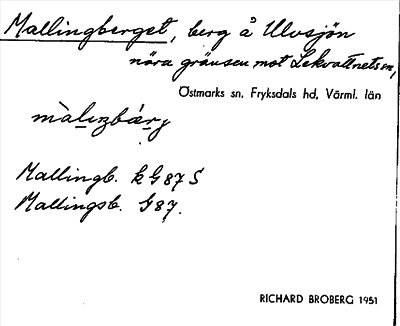 Mallingberget, berg å Ulvsjön
nära gränsen mot Lekvattnets sn,
Östmarks sn. Fryksdals hd, Värml. län
màlıŋbæ̀rj
Mallingb. k G 87 S
Mallingsb. G87.
RICHARD BROBERG 1951